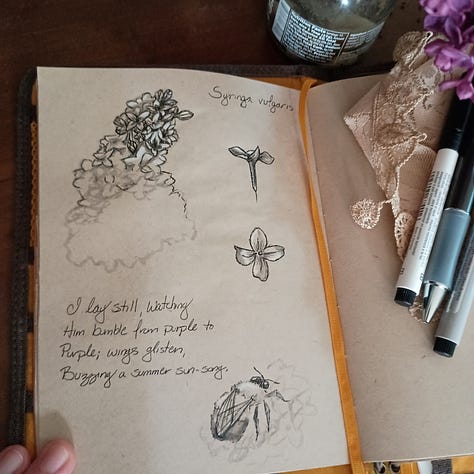 Syringa vulgaris
I lay still, watching
Him bumble from purple to
Purple; wings glisten,
Buzzing a summer sun-song.